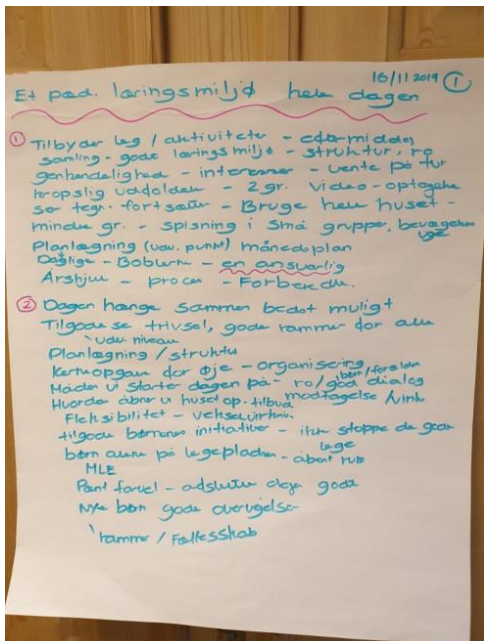 16/11 2019 ①
Et pæd. læringsmiljø hele dagen
① Tilbyder leg / aktiviteter - eftermiddag
samling - gode læringsmiljø - struktur, ro
genkendelighed - interesser - vente på tur
kropslig udfoldelse - 2 gr. video-optagelse
ser tegn - fortsætte - Bruge hele huset -
mindre gr. - spisning i små gruppe, bevægelses
uge
Planlægning (udv. punkt) månedsplan
Daglige - Boblerne - en ansvarlig
Årshjul - proces - Forberede.
② Dagen hænge sammen bedst muligt
Tilgodese trivsel, gode rammer for alle
udv. niveau
Planlægning / struktur
Kerneopgave for øje - organisering
børn/forældre
Måden vi starter dagen på - ro/god dialog
Hvordan åbner vi huset op. tilbud modtagelse / vink
Fleksibilitet - vekselvirkning
tilgode børnenes initiativer - ikke stoppe de gode
lege
børn alene på legepladsen - åbent rum
MLE
Pænt farvel - afslutte dagen godt
Nye børn gode overgange
rammer / Fællesskab